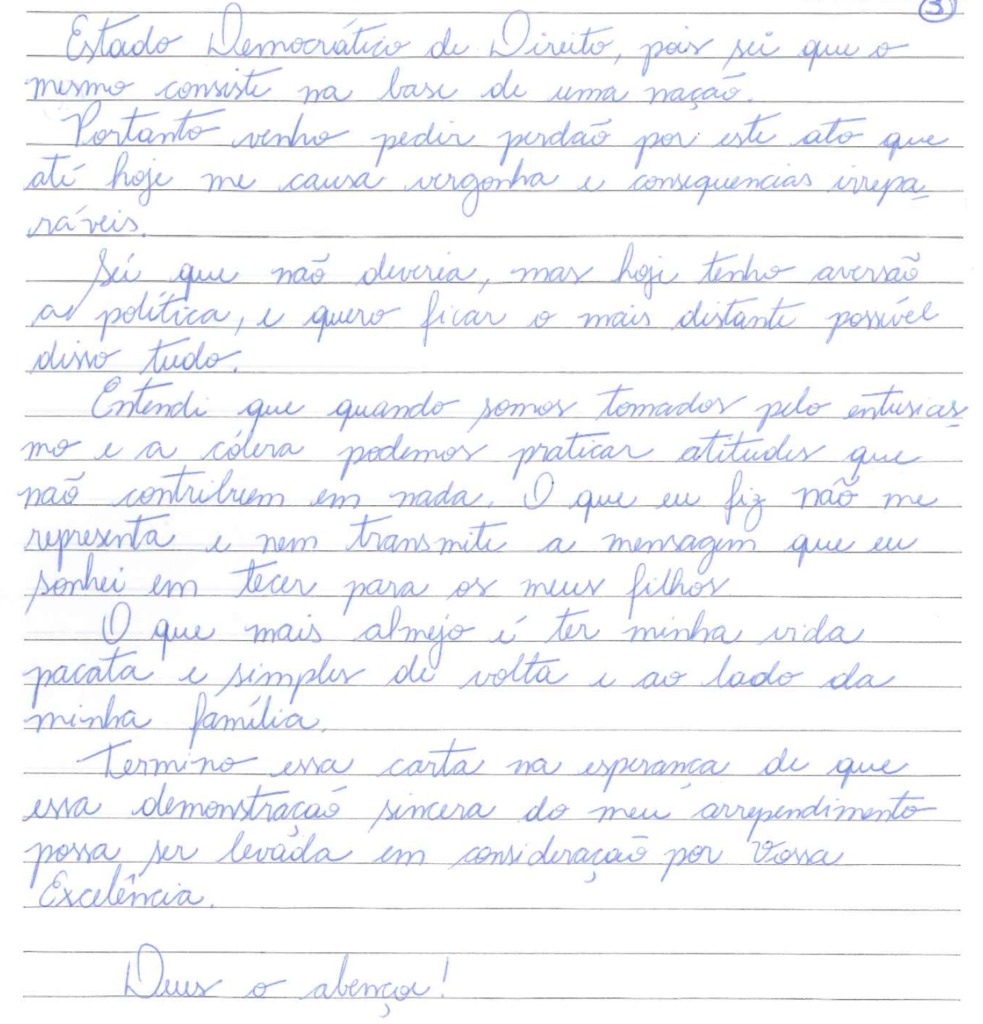 3
Estado Democrático de Direito, pois sei que o
mesmo consiste na base de uma nação.
Portanto venho pedir perdão por este ato que
até hoje me causa vergonha e consequencias irrepa-
ráveis.
Sei que não deveria, mas hoje tenho aversão
a política, e quero ficar o mais distante possível
disso tudo.
Entendi que quando somos tomados pelo entusias-
mo e a cólera podemos praticar atitudes que
não contribuem em nada. O que eu fiz não me
representa e nem transmite a mensagem que eu
sonhei em tecer para os meus filhos
O que mais almejo é ter minha vida
pacata e simples de volta e ao lado da
minha família.
Termino essa carta na esperança de que
essa demonstração sincera do meu arrependimento
possa ser levada em consideração por Vossa
Excelência.
Deus o abençoe!